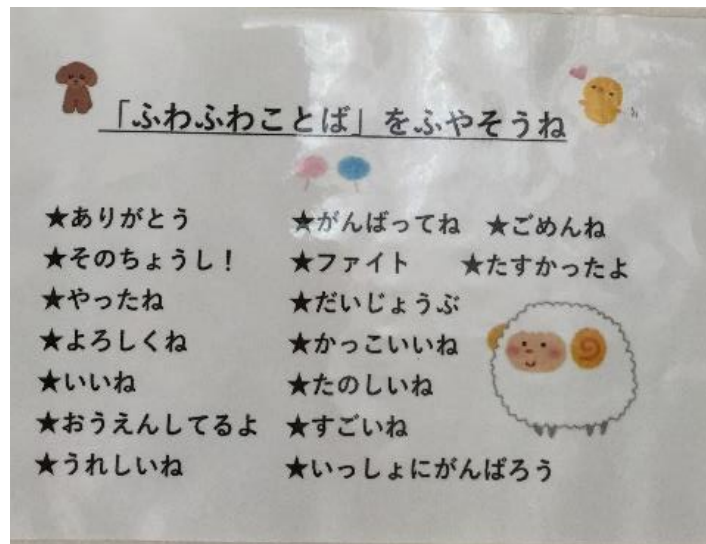 「ふわふわことば」をふやそうね
★ありがとう
★そのちょうし！
★やったね
★よろしくね
★いいね
★おうえんしてるよ
★うれしいね
★がんばってね ★ごめんね
★ファイト ★たすかったよ
★だいじょうぶ
★かっこいいね
★たのしいね
★すごいね
★いっしょにがんばろう